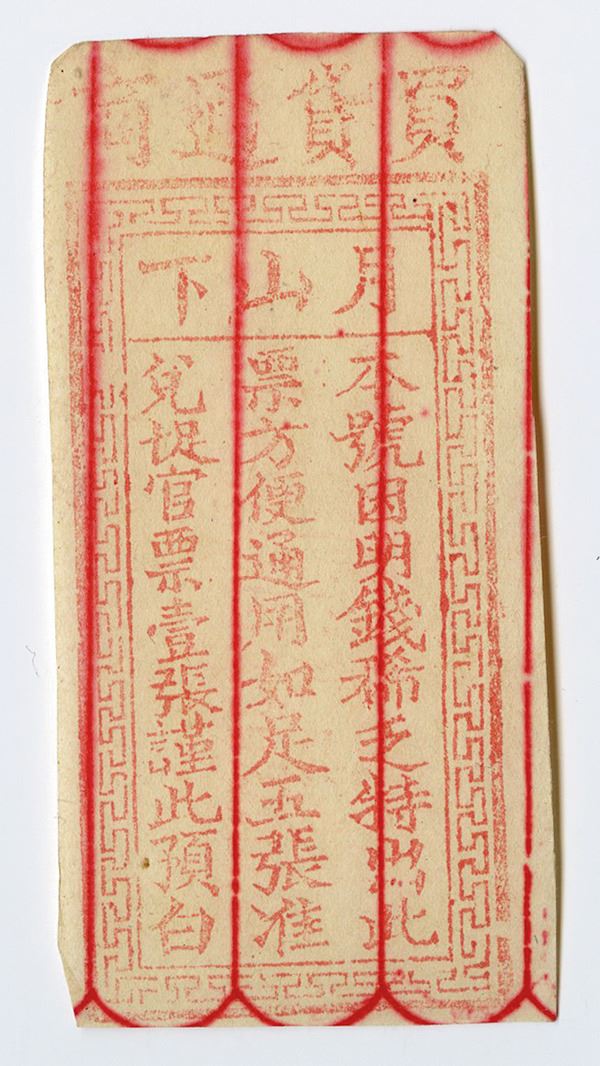 買貨通商
月山下
本號因明錢稀乏特出此
票方便通用如足五張准
兌提官票壹張謹此預白